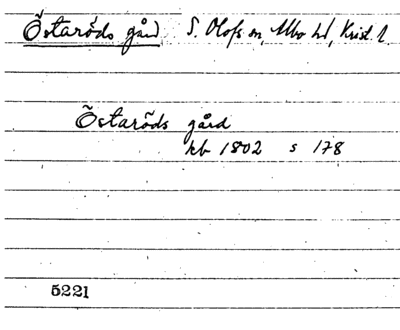 Östaröds gård S. Olofs sn, Albo hd, Krist. l.
Östaröds gård
kb 1802 s 178
5221